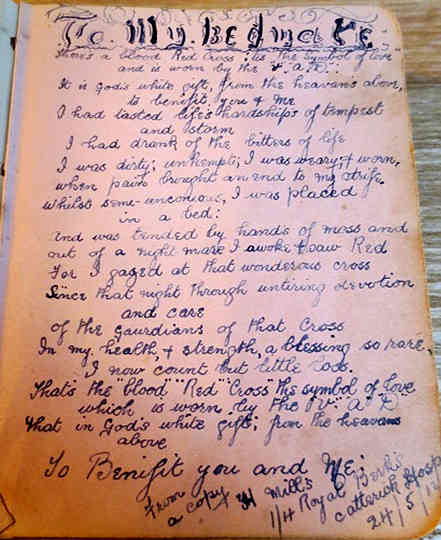 "To My Bedmate"
There's a blood Red Cross; 'tis the symbol of love
and is worn by the V. A. D.:
It is God's white gift, from the heavans above,
to benefit, you & me
I had tasted life's hardships of tempest
and storm
I had drank of the bitters of life
I was dirty; unkempt; I was weary & worn,
when pain brought an end to my strife.
whilst semi-unconious, I was placed
in a bed:
and was tended by hands of mass and
out of a night mare I awoke & saw Red
For I gazed at that wonderous cross
Since that night through untiring devotion
and care
of the Gaurdians of that Cross
In my health, & strength, a blessing so rare
I now count but little loss.
That's the "blood" "Red" "Cross" the symbol of love
which is worn by the "V" "A" "D"
that in God's white gift; from the heavans
above
To Benifit you and Me;
from
a copy
H Mills
1/4 Royal Berks
Catterick Hosp
24/5/